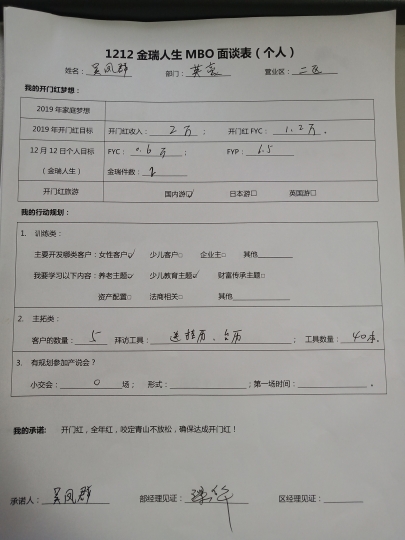 1212 金瑞人生 MBO 面谈表（个人）
姓名：吴凤群 部门：英豪 营业区：二区
我的开门红梦想：
2019 年家庭梦想
2019 年开门红目标 开门红收入：2万； 开门红 FYC：1.2万.
12 月 12 日个人目标 FYC：0.6万； FYP：1.5
（金瑞人生） 金瑞件数：
开门红旅游 国内游☑ 日本游□ 英国游□
我的行动规划：
1. 训练类：
主要开发哪类客户：女性客户☑ 少儿客户□ 企业主□ 其他
我要学习以下内容：养老主题☑ 少儿教育主题☑ 财富传承主题□
资产配置□ 法商相关□ 其他
2. 主拓类：
客户的数量：5 拜访工具：送挂历、台历； 工具数量：40本.
3. 有规划参加产说会？
小交会：0场； 形式：；第一场时间：.
我的承诺: 开门红，全年红，咬定青山不放松，确保达成开门红！
承诺人：吴凤群 部经理见证： 区经理见证：